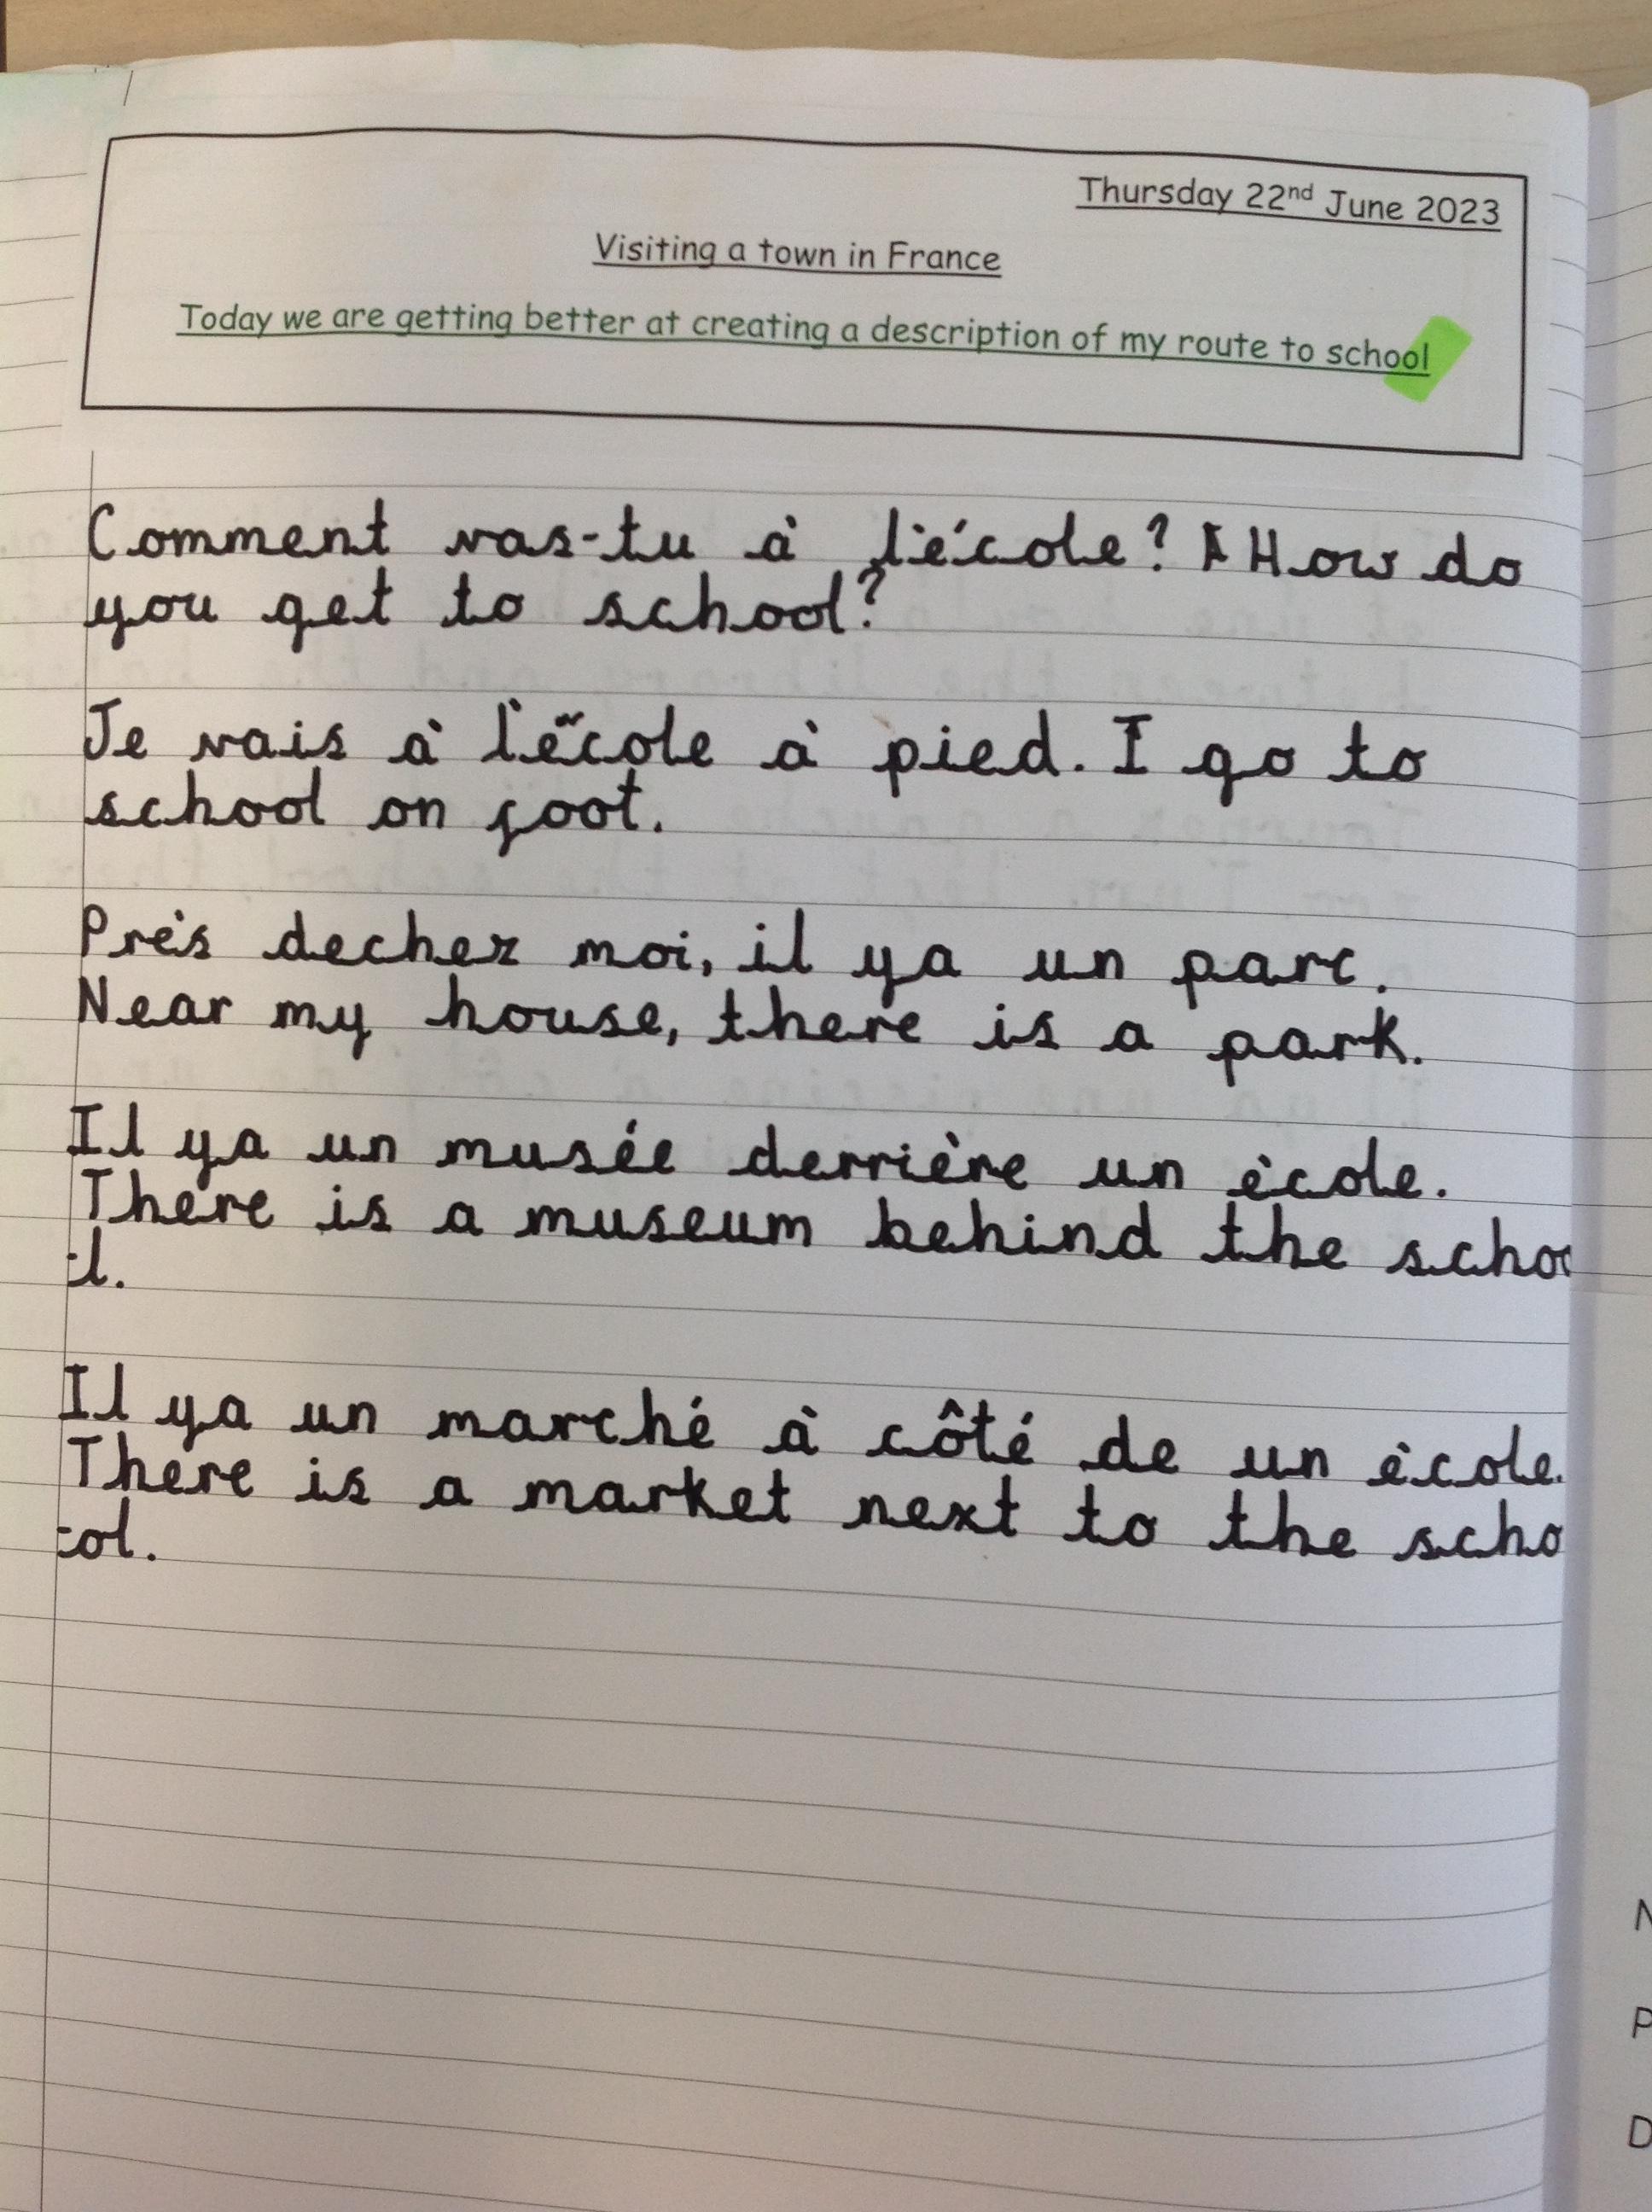 Thursday 22nd June 2023
Visiting a town in France
Today we are getting better at creating a description of my route to school
Comment vas-tu à l'école? How do
you get to school?
Je vais à l'école à pied. I go to
school on foot.
Prés dechez moi, il ya un parc.
Near my house, there is a park.
Il ya un musée derrière un ècole.
There is a museum behind the schoo
-l.
Il ya un marché à côté de un ècole.
There is a market next to the scho
-ol.
N
P
D